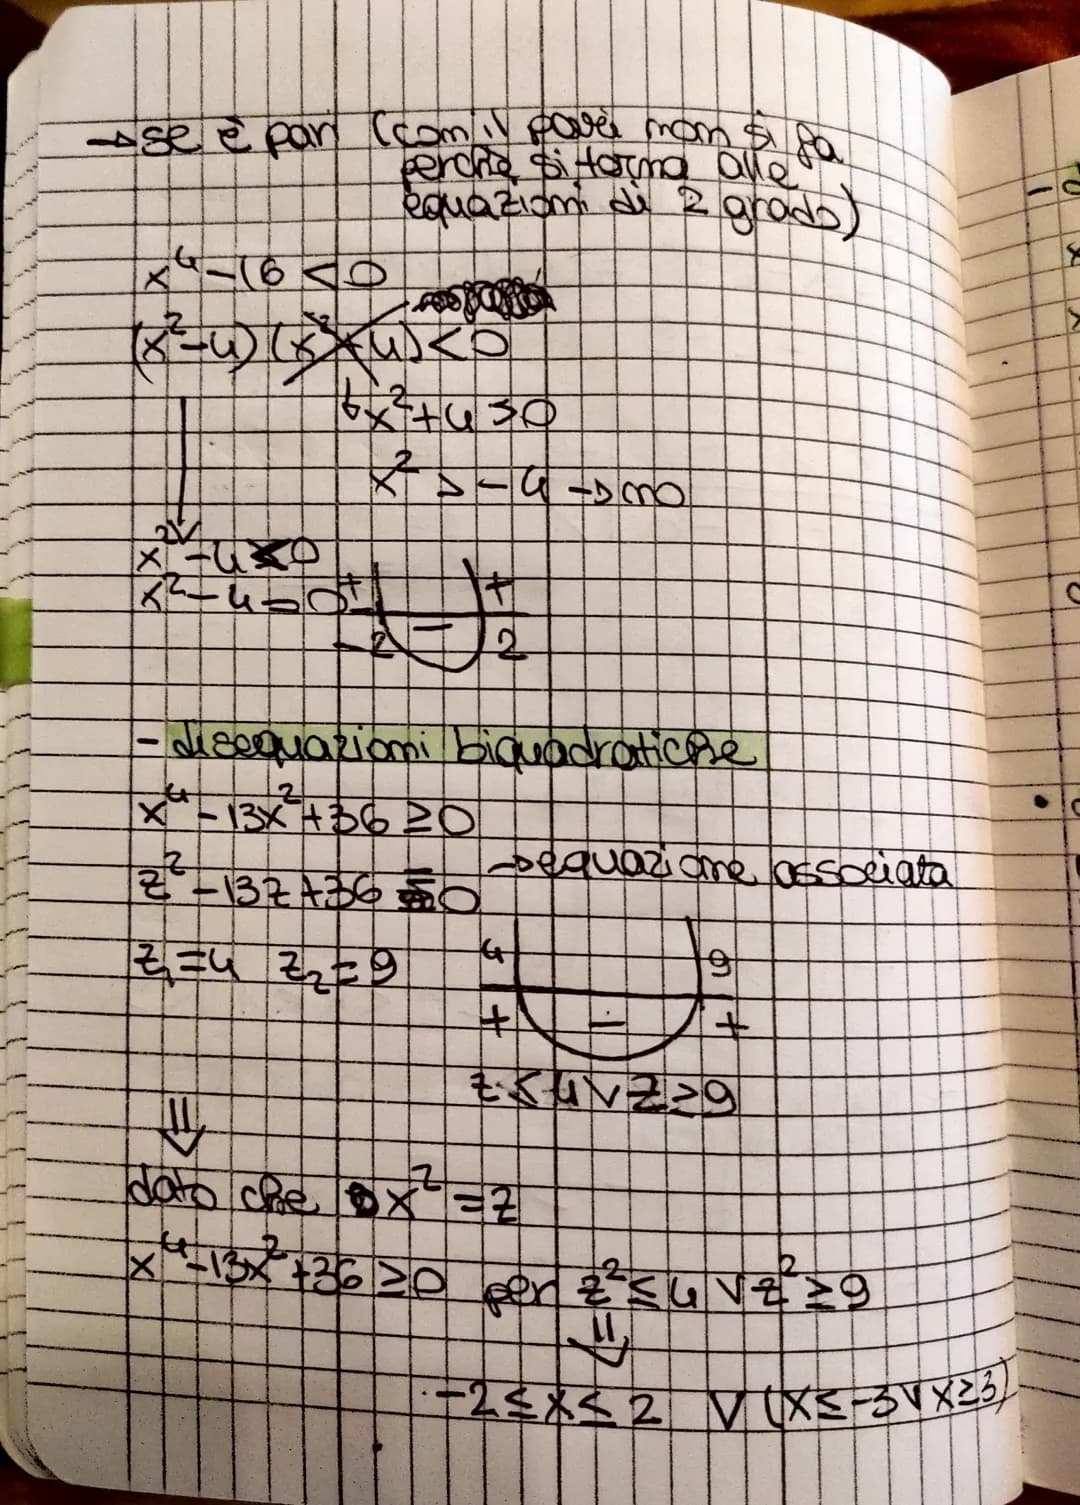 → se è pari (con il pari non si fa
perchè si torna alle
equazioni di 2 grado)
x⁴-16<0
(x²-4)(x²+4)<0
↳x²+4>0
x² > -4 → no
x²-4<0
x²-4=0
+ +
-2 - 2
- disequazioni biquadratiche
x⁴-13x²+36≥0
→ equazione associata
z²-13z+36=0
z₁=4 z₂=9
4 9
+ - +
z≤4 ∨ z≥9
⇓
dato che x²=z
x⁴-13x²+36≥0 per z²≤4 ∨ z²≥9
⇓
-2≤x≤2 ∨ (x≤-3 ∨ x≥3)